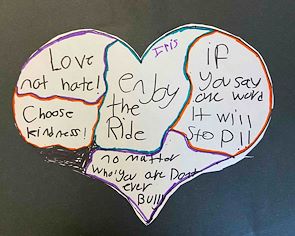 Love
not hate!
Choose
kindness!
Iris
enjoy
the
Ride
if
you say
one word
It will
stop!!
no matter
who you are Dont
ever
Bully